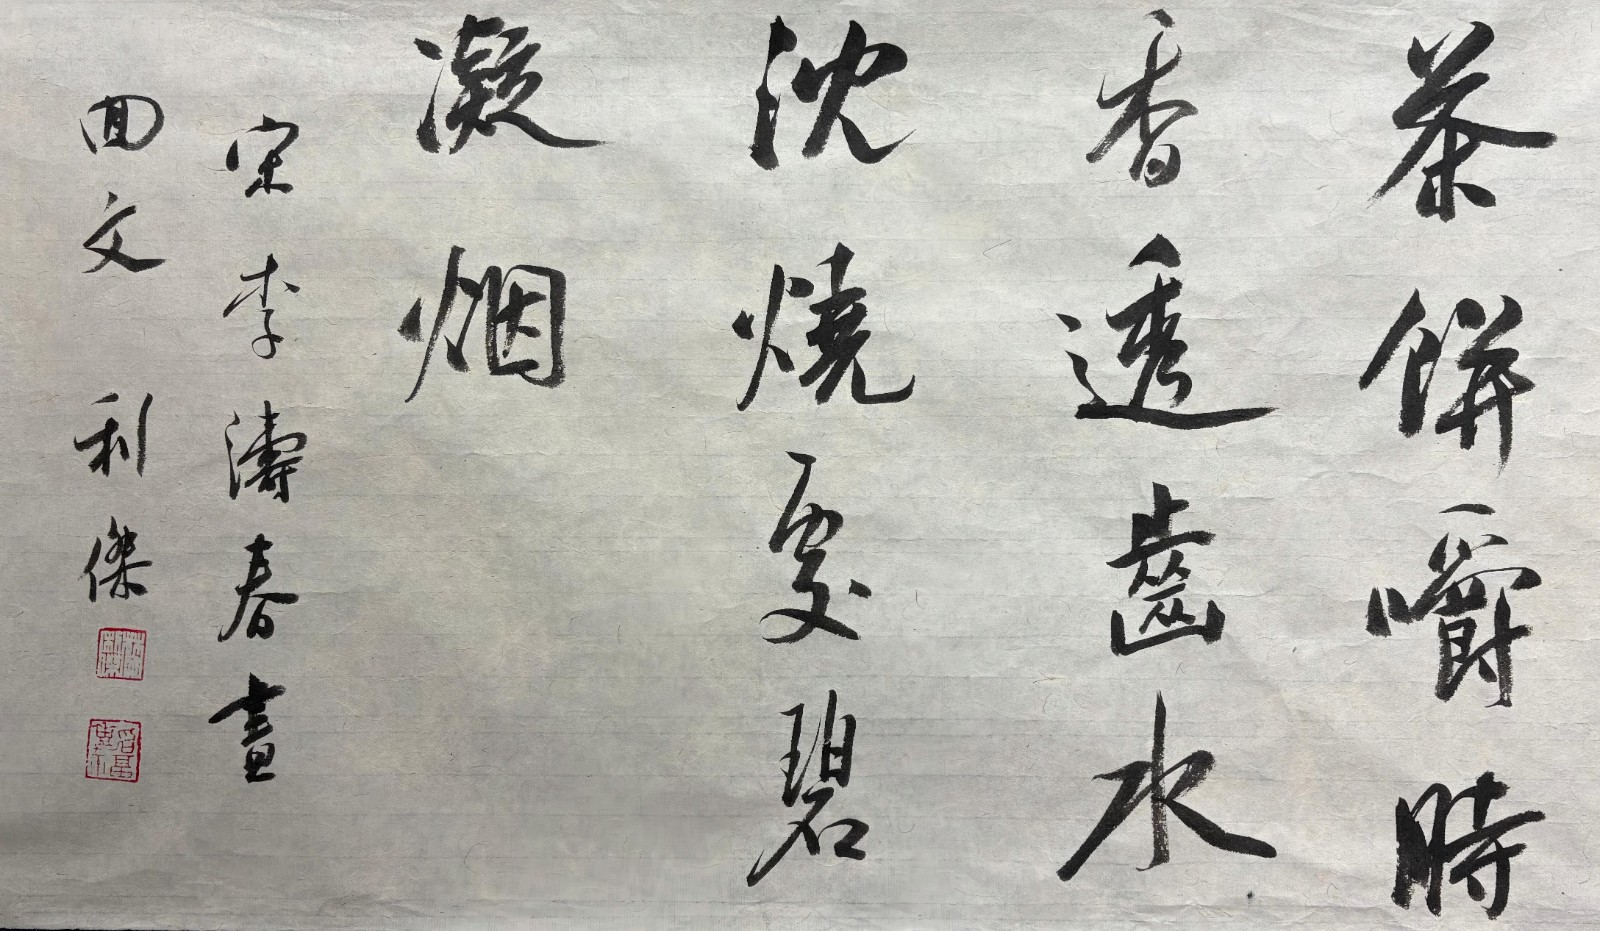 茶餅嚼時
香透齒水
沈燒處碧
凝烟
宋李濤春晝
回文 利傑